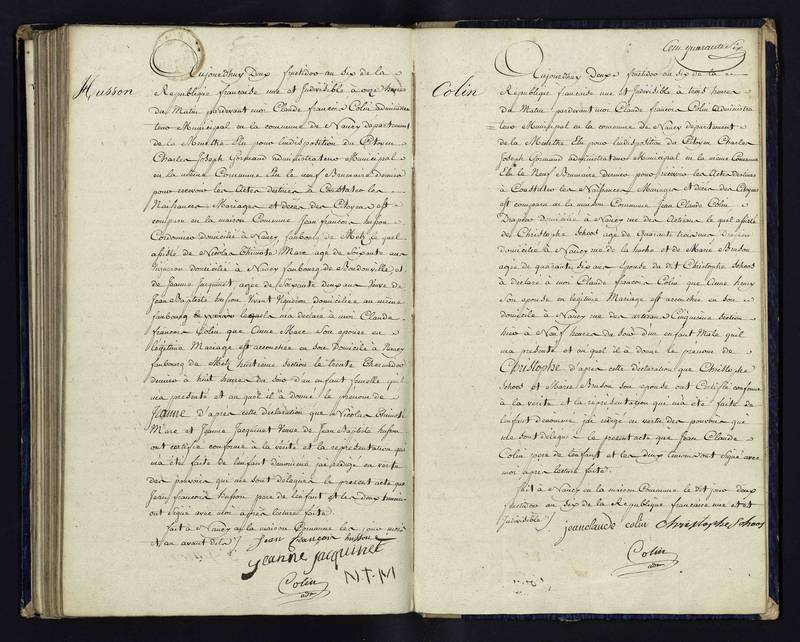 Husson
Aujourdhuy Deux fructidor an Six de la
Republique francaise une et Indivisible à onze heures
du Matin pardevant moi Claude francois Colin administra
teur Municipal en la commune de Nancy département
de la Meurthe Elu pour lindisposition du Citoyen
Charles Joseph Gormand administrateur Municipal
en la même Commune Elu le neuf Brumaire dernier
pour recevoir les Actes destinés à Constater les
Naissances Mariages et décès des Citoyens est
comparu en la maison Commune Jean francois husson
Cordonnier domicilié à Nancy faubourg de Metz le quel
assisté de Nicolas Thimoté Marc agé de Soixante ans
Vigneron domicilié à Nancy faubourg de Boudonville et
de Jeanne Jacquinet agée de Soixante deux ans Veuve de
Jean Baptiste husson Vivant Vigneron domiciliée au même
faubourg lequel ma déclaré à moi Claude
francois Colin que Anne Marc Son epouse en
légitime Mariage est accouchée en son Domicile à Nancy
faubourg de Metz huitieme section le trente thermidor
dernier à huit heures du soir d'un enfant femelle quil
ma présenté et au quel il à donné le prénom de
Jeanne d'après cette déclaration que Nicolas Thimoté
Marc et Jeanne Jacquinet Veuve de Jean Baptiste husson
ont certifié conforme à la vérité et la représentation qui
m'a été faite de lenfant dénommé jai rédigé en vertu
des pouvoirs qui me sont délégués le present acte que
Jean francois husson pere de lenfant et les deux témoins
ont signé avec moi après lecture faite.
fait à Nancy en la maison Commune les jour mois
et an avant dits
jean françois husson
jeanne jacquinet
N.T.M
Colin
adm
Cent quarante Six
Colin
Aujourdhuy Deux fructidor an Six de la
Republique francaise une et Indivisible à trois heures
du Matin pardevant moi Claude francois Colin administra
teur Municipal en la commune de Nancy département
de la Meurthe Elu pour lindisposition du Citoyen Charles
Joseph Gormand administrateur Municipal en la même Commune
Elu le Neuf Brumaire dernier pour recevoir les Actes destinés
à Constater les Naissances Mariages et décès des Citoyens
est comparu en la maison Commune Jean Claude Colin
Drapier Domicilié à Nancy rue des Artisans le quel assisté
de Christophe Schoos agé de Quarante trois ans
domicilié à Nancy rue de la hache et de Marie Busson
agée de quarante six ans épouse du dit Christophe Schoos
à déclaré à moi Claude francois Colin que Anne henry
Son épouse en legitime Mariage est accouchée en son
domicile à Nancy rue des artisans Cinquieme section
hier à Neuf heures du soir d'un enfant Mâle quil
ma présenté et au quel il à donné le prénom de
Christophe d'après cette déclaration que Christophe
Schoos et Marie Busson son epouse ont Certifié conforme
à la vérité et la représentation qui m'a été faite de
lenfant dénommé jai rédigé en vertu des pouvoirs qui
me sont délégués le present acte que Jean Claude
Colin pere de lenfant et les deux témoins ont Signé avec
moi après lecture faite.
fait à Nancy en la maison Commune le dit jour deux
fructidor an Six de la Republique française une et
Indivisible
jeanclaude colin Christophe Schoos
Colin
adm